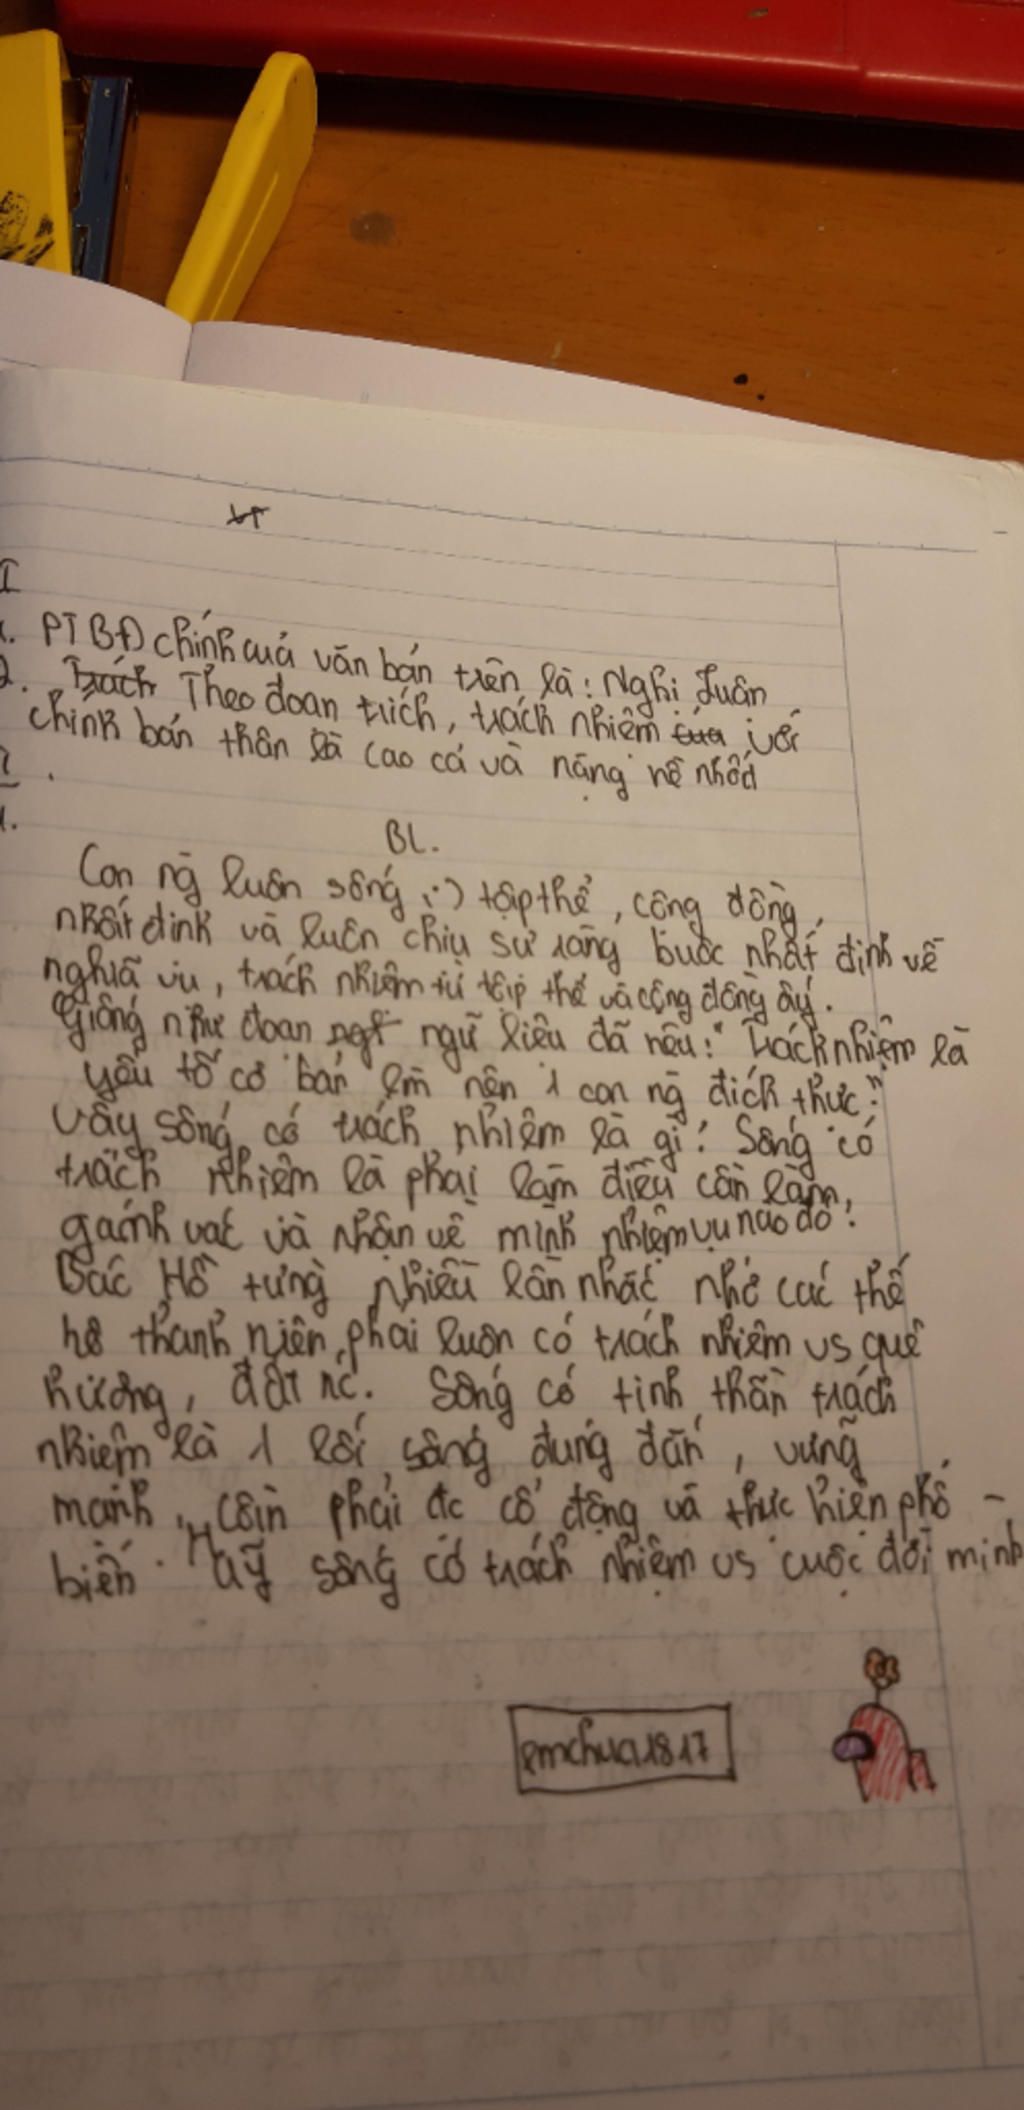 I
1. PTBĐ chính của văn bản trên là: Nghị luận
2. Trách Theo đoạn trích, trách nhiệm của với
chính bản thân là cao cả và nặng nề nhất
II.
1.
BL.
Con ng luôn sống :) tập thể, cộng đồng,
nhất định và luôn chịu sự ràng buộc nhất định về
nghĩa vụ, trách nhiệm từ tập thể và cộng đồng ấy.
Giống như đoạn ngữ liệu đã nêu: "Trách nhiệm là
yếu tố cơ bản làm nên 1 con ng đích thực."
Vậy sống có trách nhiệm là gì? Sống có
trách nhiệm là phải làm điều cần làm,
gánh vác và nhận về mình nhiệm vụ nào đó.
Bác Hồ từng nhiều lần nhắc nhở các thế
hệ thanh niên phải luôn có trách nhiệm vs quê
hương, đất nc. Sống có tinh thần trách
nhiệm là 1 lối sống đúng đắn, vững
mạnh, cần phải đc cổ động và thực hiện phổ -
biến. Hãy sống có trách nhiệm vs cuộc đời mình
pmchua1817